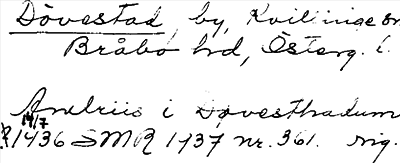 Dövestad, by, Kvillinge sn
Bråbo hd, Österg. l.
Andriis i Døvesthadum
14/7
1436 SMR 1937 nr. 361. orig.